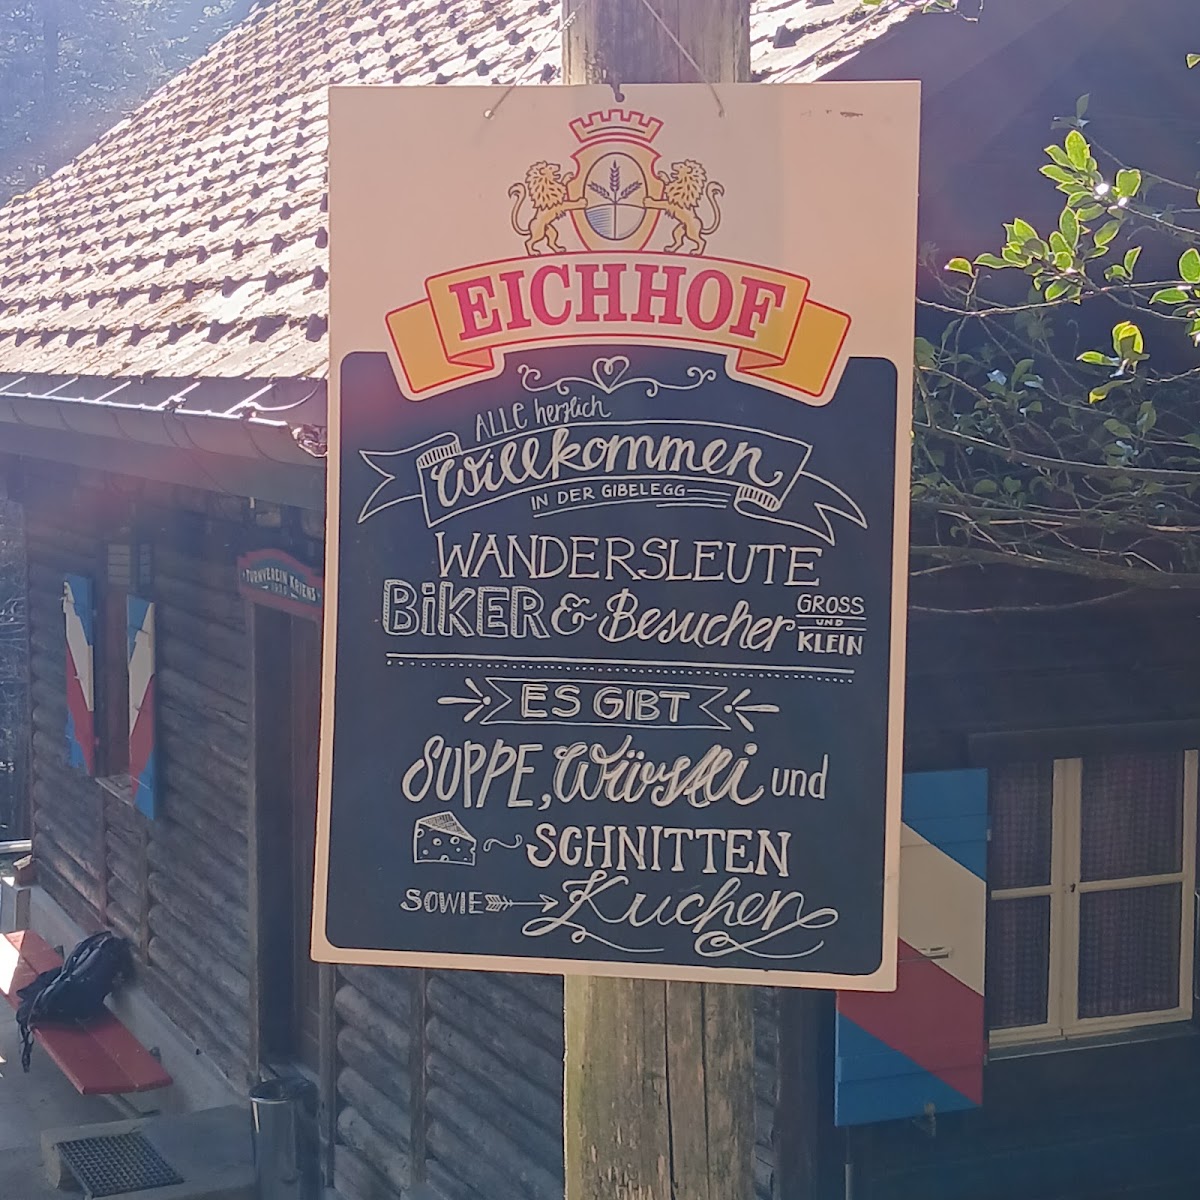 EICHHOF
ALLE herzlich
Willkommen
IN DER GIBELEGG
WANDERSLEUTE
BiKER & Besucher GROSS UND KLEIN
ES GIBT
SUPPE, Würstli und
SCHNITTEN
SOWIE Kuchen
TURNVEREIN KRIENS